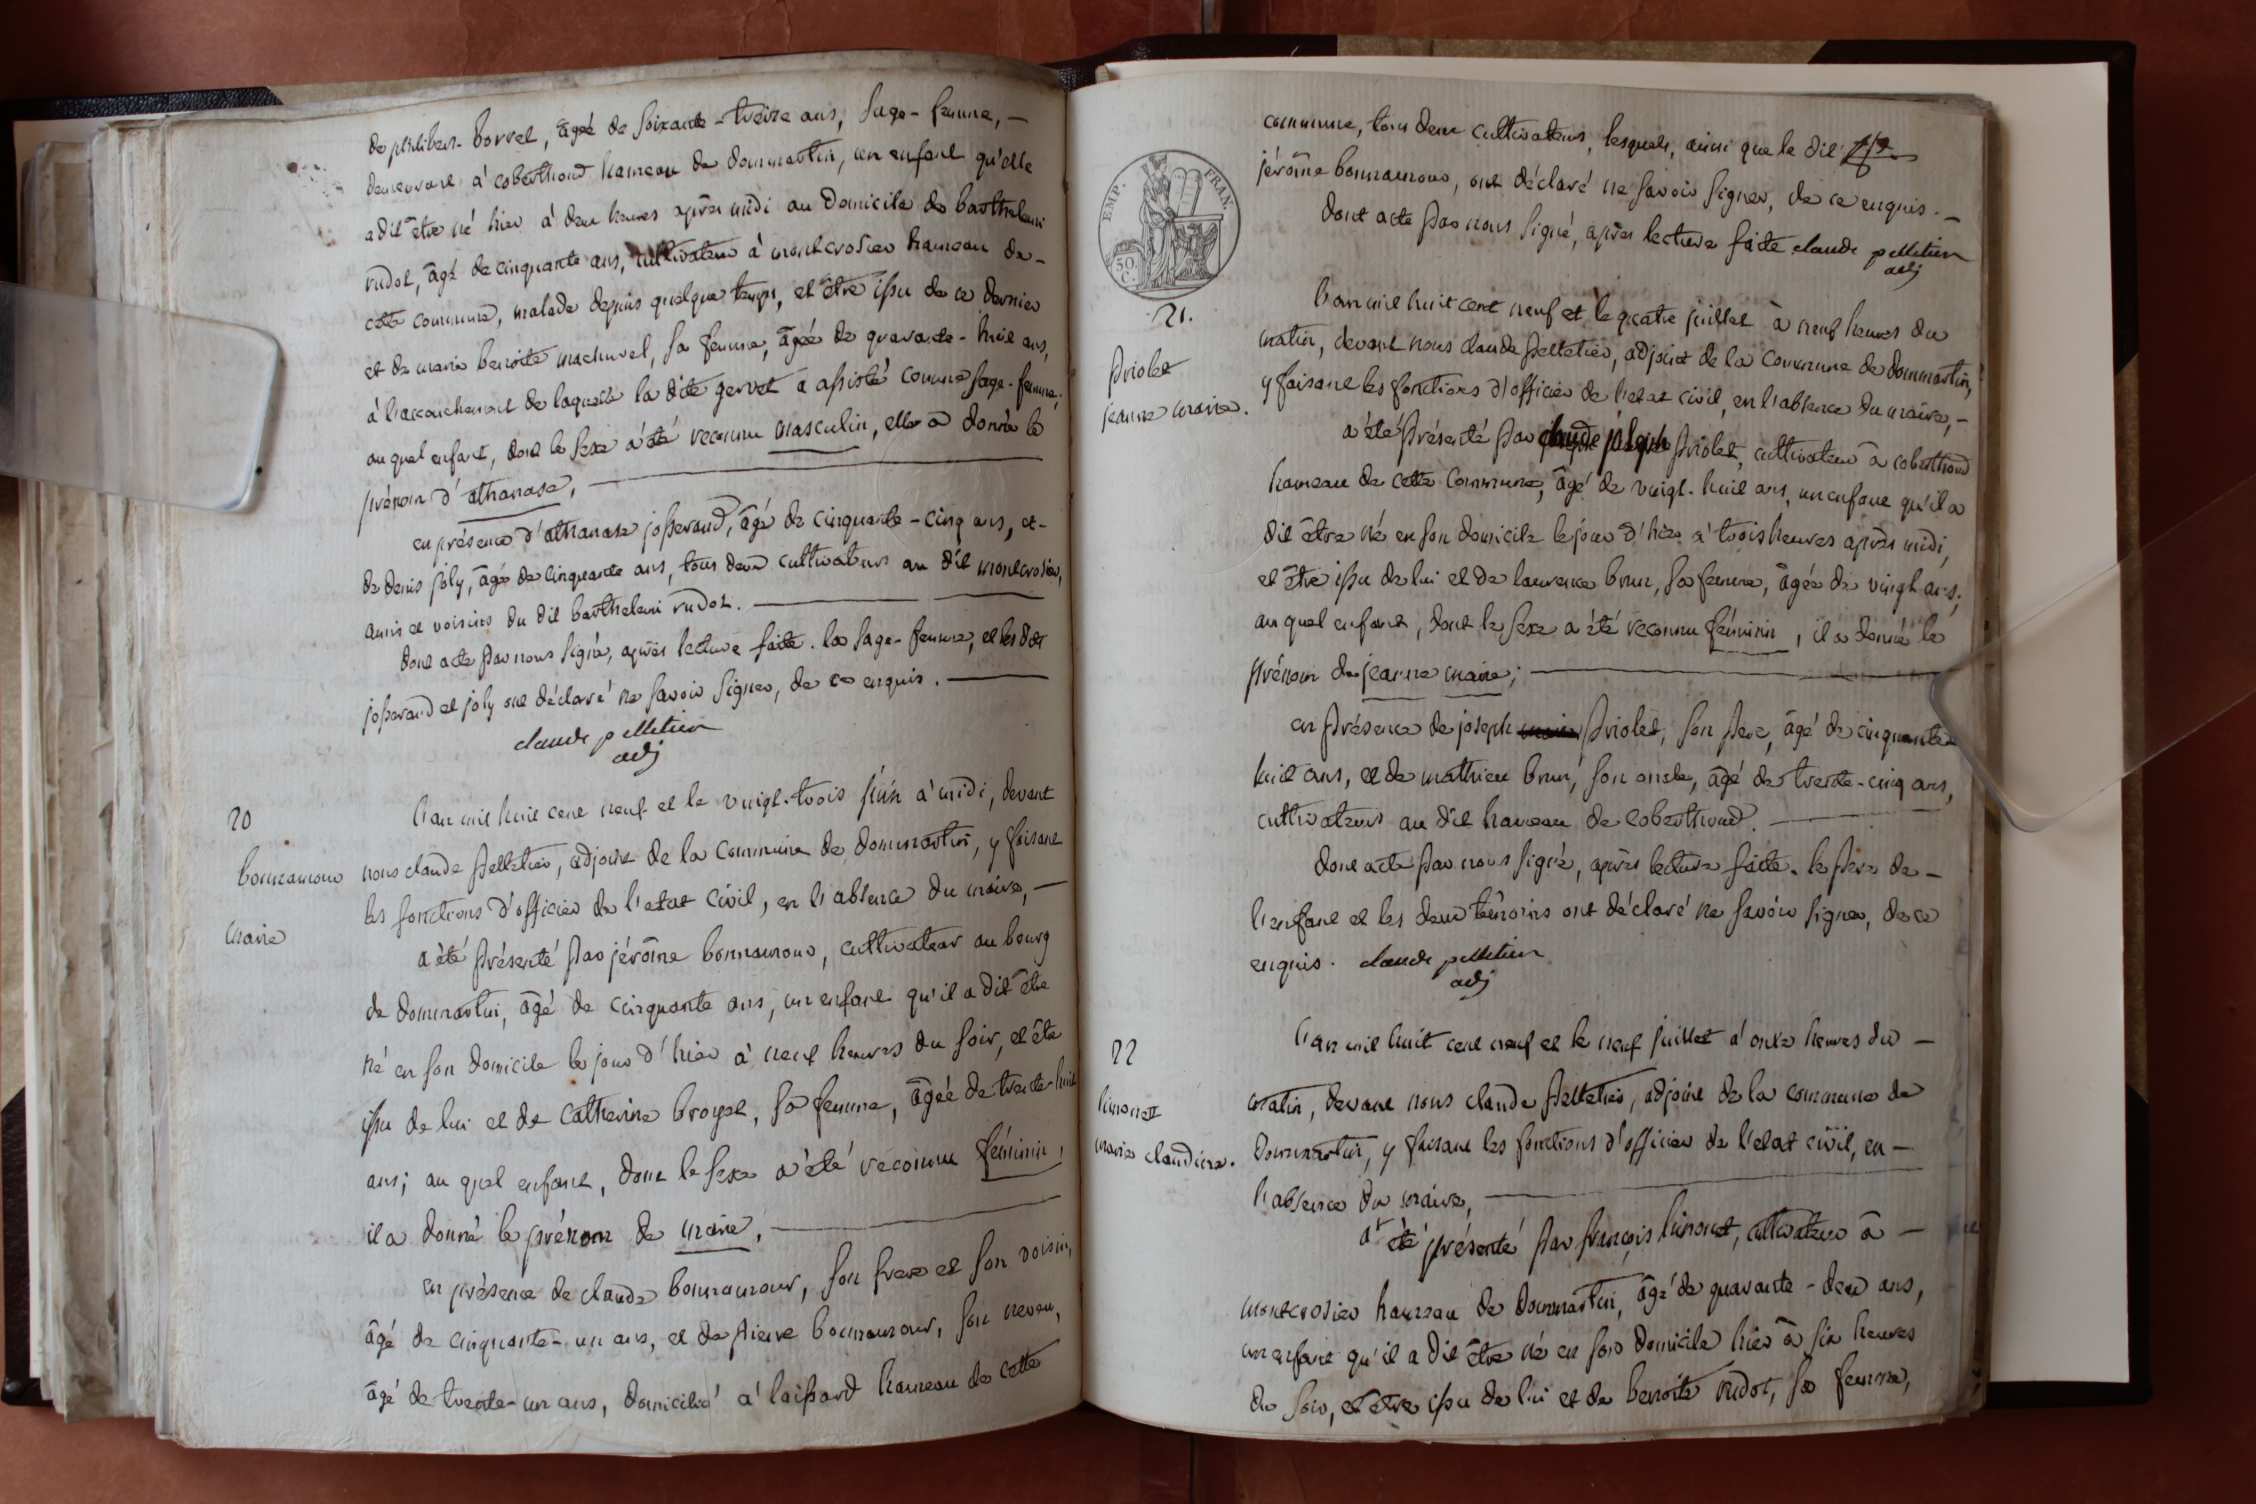 de philibert borrel, âgée de soixante-treize ans, sage-femme, —
demeurant à coberthoud hameau de dommartin, un enfant qu'elle
a dit être né hier à deux heures après midi au domicile de barthelemi
rudot, âgé de cinquante ans, cultivateur à montcrosier hameau de -
cette commune, malade depuis quelque temps, et être issu de ce dernier
et de marie benoite machurel, sa femme, âgée de quarante-huit ans,
à l'accouchement de laquelle la dite gervet a assisté comme sage-femme;
au quel enfant, dont le sexe a été reconnu masculin, elle a donné le
prénom d'athanase,
en présence d'athanase josserand, âgé de cinquante-cinq ans, et -
de denis joly, âgé de cinquante ans, tous deux cultivateurs au dit montcrosier,
amis et voisins du dit barthelemi rudot.
dont acte par nous signé, après lecture faite. la sage-femme, et les dits
josserand et joly ont déclaré ne savoir signer, de ce enquis.
claude pelletier
adj
20
bonnamour
marie
l'an mil huit cent neuf et le vingt-trois juin à midi, devant
nous claude pelletier, adjoint de la commune de dommartin, y faisant
les fonctions d'officier de l'etat civil, en l'absence du maire, —
a été présenté par jérôme bonnamour, cultivateur au bourg
de dommartin, âgé de cinquante ans, un enfant qu'il a dit être
né en son domicile le jour d'hier à neuf heures du soir, et être
issu de lui et de catherine broyet, sa femme, âgée de trente-huit
ans; au quel enfant, dont le sexe a été reconnu féminin,
il a donné le prénom de marie,
en présence de claude bonnamour, son frere et son voisin,
âgé de cinquante-un ans, et de pierre bonnamour, son neveu,
âgé de trente-un ans, domicilié à laissard hameau de cette
commune, tous deux cultivateurs, lesquels, ainsi que le dit
jérôme bonnamour, ont déclaré ne savoir signer, de ce enquis. —
dont acte par nous signé, après lecture faite claude pelletier
adj
EMP. FRAN.
50
C.
21.
priolet
jeanne marie.
l'an mil huit cent neuf et le quatre juillet à neuf heures du
matin, devant nous claude pelletier, adjoint de la commune de dommartin,
y faisant les fonctions d'officier de l'etat civil, en l'absence du maire, -
a été présenté par claude joseph priolet, cultivateur à coberthoud
hameau de cette commune, âgé de vingt-huit ans, un enfant qu'il a
dit être né en son domicile le jour d'hier à trois heures après midi,
et être issu de lui et de laurence brun, sa femme, âgée de vingt ans;
au quel enfant, dont le sexe a été reconnu féminin, il a donné le
prénom de jeanne marie;
en présence de joseph priolet, son pere, âgé de cinquante
huit ans, et de mathieu brun, son oncle, âgé de trente-cinq ans,
cultivateurs au dit hameau de coberthoud.
dont acte par nous signé, après lecture faite. le pere de -
l'enfant et les deux témoins ont déclaré ne savoir signer, de ce
enquis. claude pelletier
adj
22
limonet
marie claudine.
l'an mil huit cent neuf et le neuf juillet à onze heures du —
matin, devant nous claude pelletier, adjoint de la commune de
dommartin, y faisant les fonctions d'officier de l'etat civil, en —
l'absence du maire,
a été présenté par françois limonet, cultivateur à —
montcrosier hameau de dommartin, âgé de quarante-deux ans,
un enfant qu'il a dit être né en son domicile hier à six heures
du soir, et être issu de lui et de benoite rudot, sa femme,